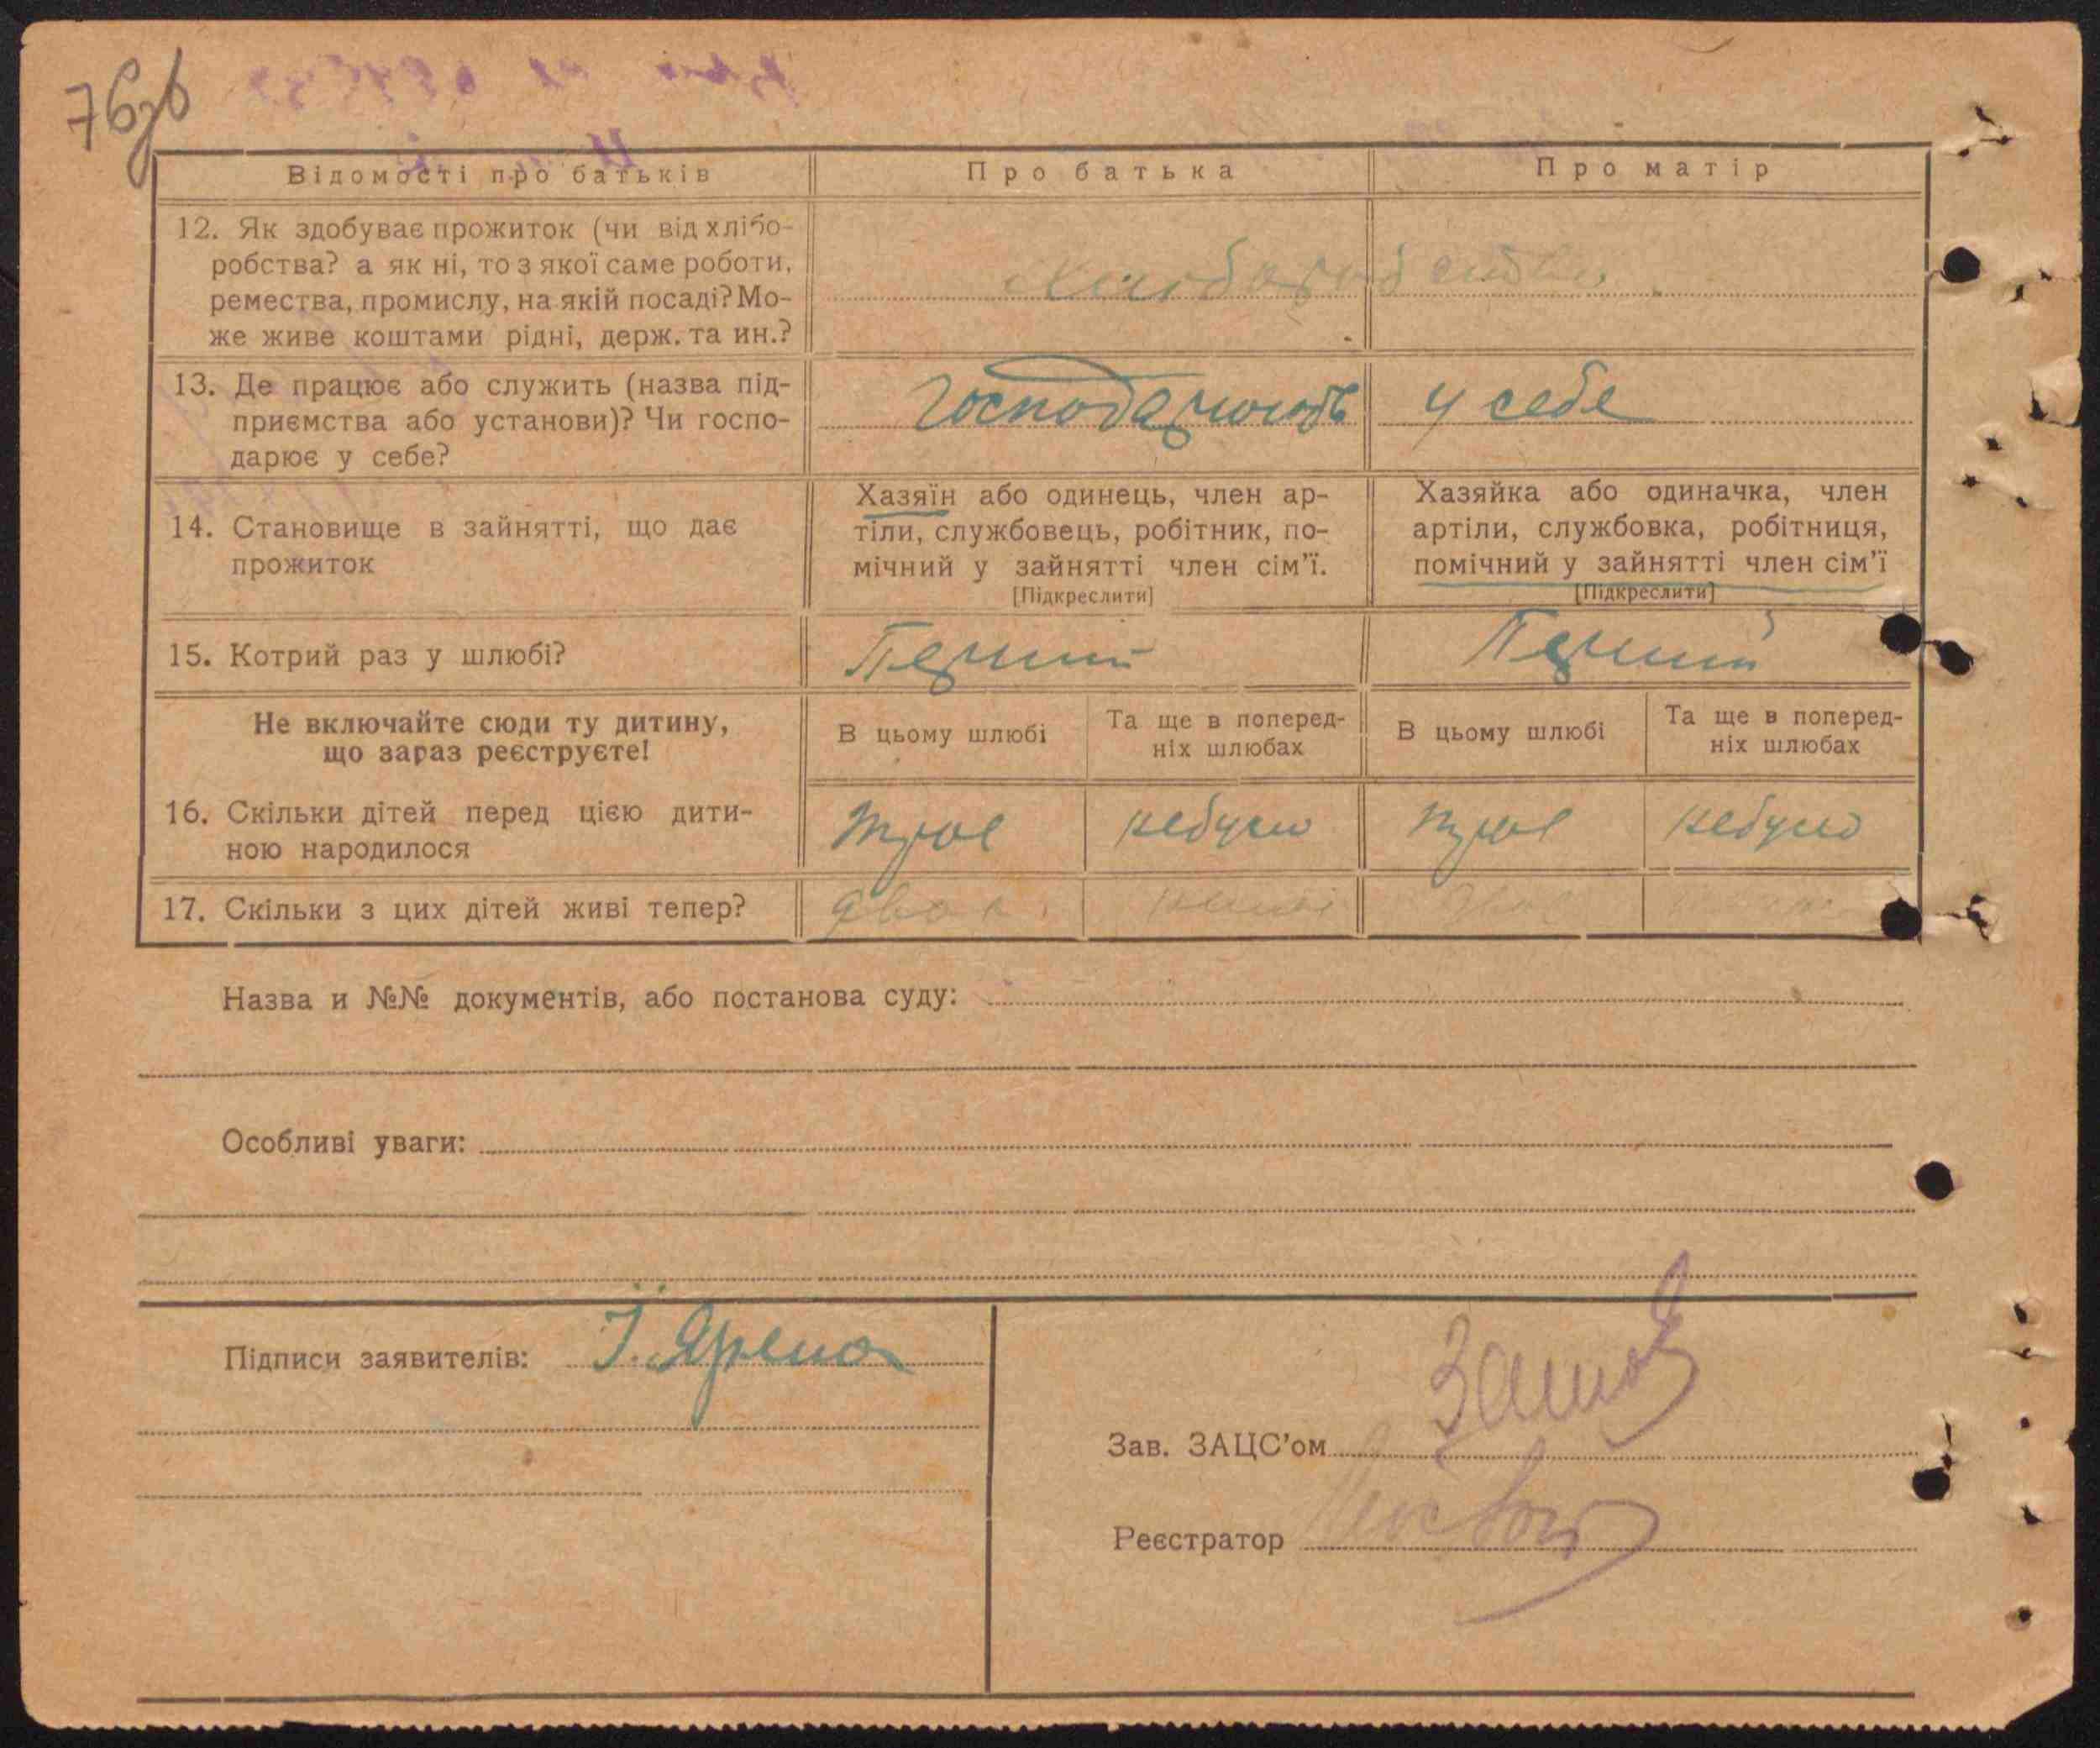 76зв
Відомості про батьків Про батька Про матір
12. Як здобуває прожиток (чи від хлібо-
робства? а як ні, то з якої саме роботи,
ремества, промислу, на якій посаді? Мо-
же живе коштами рідні, держ. та ин.?
13. Де працює або служить (назва під-
приємства або установи)? Чи госпо-
дарює у себе?
Господарюють у себе
14. Становище в зайнятті, що дає
прожиток
Хазяїн або одинець, член ар-
тіли, службовець, робітник, по-
мічний у зайнятті член сім'ї.
[Підкреслити]
Хазяйка або одиначка, член
артіли, службовка, робітниця,
помічний у зайнятті член сім'ї
[Підкреслити]
15. Котрий раз у шлюбі? Перший Перший
Не включайте сюди ту дитину,
що зараз реєструєте!
В цьому шлюбі
Та ще в поперед-
ніх шлюбах
В цьому шлюбі
Та ще в поперед-
ніх шлюбах
16. Скільки дітей перед цією дити-
ною народилося
трое небуло трое небуло
17. Скільки з цих дітей живі тепер? двое двое
Назва и №№ документів, або постанова суду:
Особливі уваги:
Підписи заявителів:
Зав. ЗАЦС'ом
Реєстратор